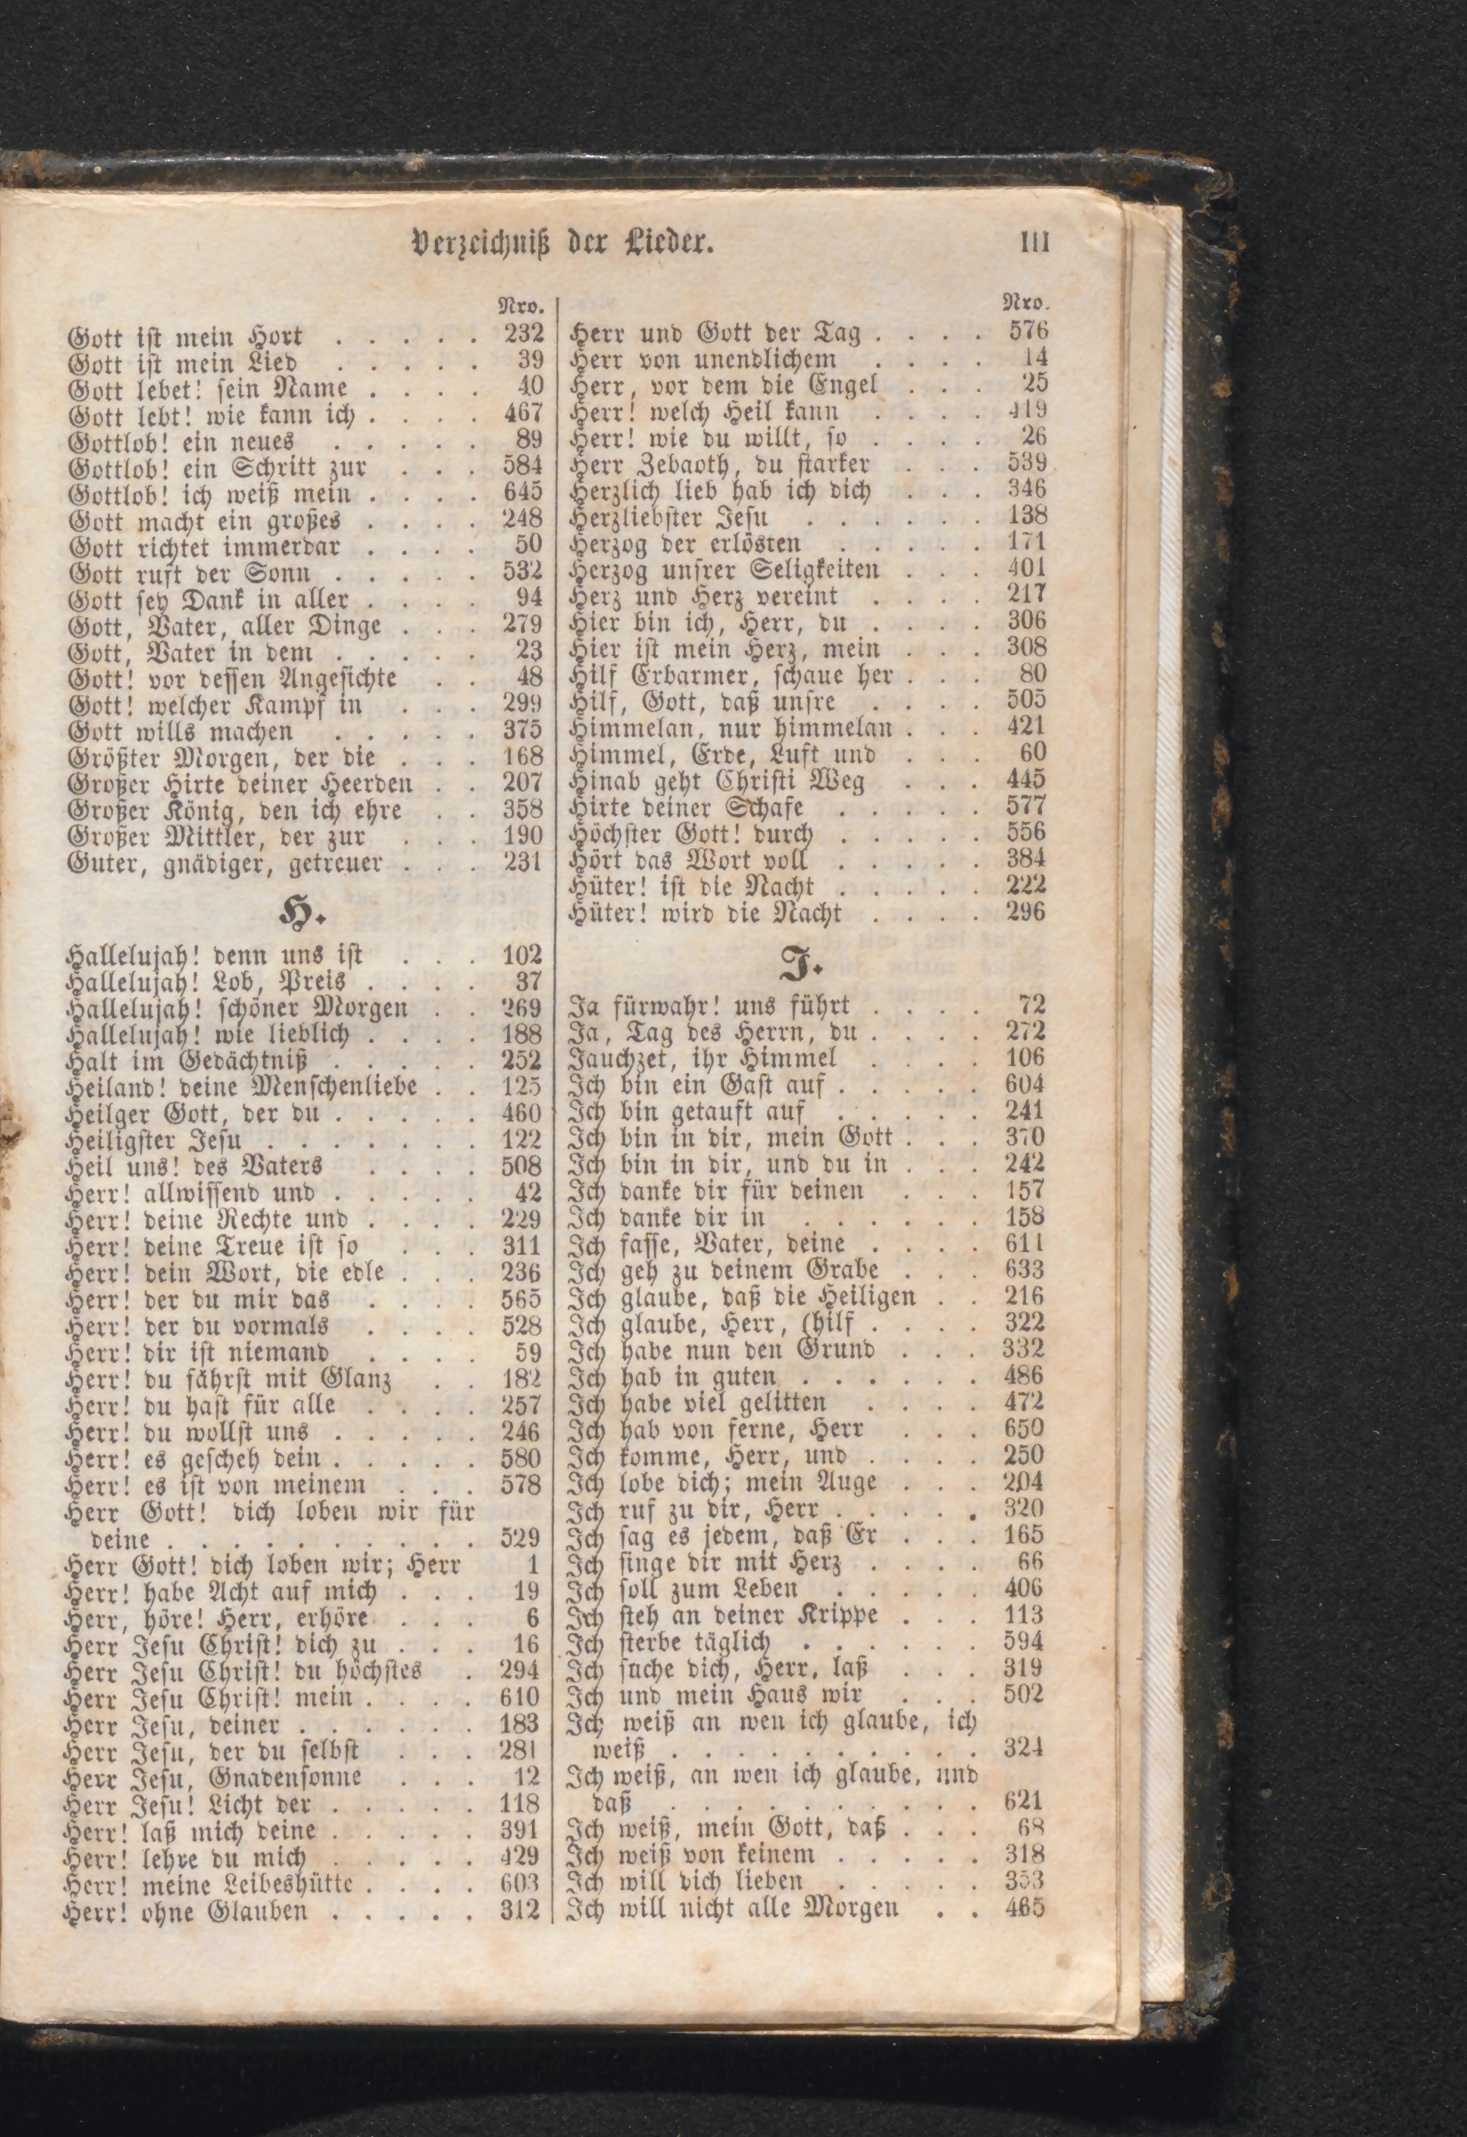 Verzeichniß der Lieder. III
Nro.
Gott ist mein Hort . . . . . 232
Gott ist mein Lied . . . . . 39
Gott lebet! sein Name . . . . 40
Gott lebt! wie kann ich . . . . 467
Gottlob! ein neues . . . . . 89
Gottlob! ein Schritt zur . . . 584
Gottlob! ich weiß mein . . . . 645
Gott macht ein großes . . . . 248
Gott richtet immerdar . . . . 50
Gott ruft der Sonn . . . . . 532
Gott sey Dank in aller . . . . 94
Gott, Vater, aller Dinge . . . 279
Gott, Vater in dem . . . . . 23
Gott! vor dessen Angesichte . . 48
Gott! welcher Kampf in . . . 299
Gott wills machen . . . . . 375
Größter Morgen, der die . . . 168
Großer Hirte deiner Heerden . . 207
Großer König, den ich ehre . . 358
Großer Mittler, der zur . . . 190
Guter, gnädiger, getreuer . . . 231
H.
Hallelujah! denn uns ist . . . 102
Hallelujah! Lob, Preis . . . . 37
Hallelujah! schöner Morgen . . 269
Hallelujah! wie lieblich . . . . 188
Halt im Gedächtniß . . . . . 252
Heiland! deine Menschenliebe . . 125
Heilger Gott, der du . . . . . 460
Heiligster Jesu . . . . . . . 122
Heil uns! des Vaters . . . . 508
Herr! allwissend und . . . . . 42
Herr! deine Rechte und . . . . 229
Herr! deine Treue ist so . . . 311
Herr! dein Wort, die edle . . . 236
Herr! der du mir das . . . . 565
Herr! der du vormals . . . . 528
Herr! dir ist niemand . . . . 59
Herr! du fährst mit Glanz . . 182
Herr! du hast für alle . . . . 257
Herr! du wollst uns . . . . . 246
Herr! es gescheh dein . . . . . 580
Herr! es ist von meinem . . . 578
Herr Gott! dich loben wir für
deine . . . . . . . . . . 529
Herr Gott! dich loben wir; Herr 1
Herr! habe Acht auf mich . . . 19
Herr, höre! Herr, erhöre . . . 6
Herr Jesu Christ! dich zu . . . 16
Herr Jesu Christ! du höchstes . 294
Herr Jesu Christ! mein . . . . 610
Herr Jesu, deiner . . . . . . 183
Herr Jesu, der du selbst . . . 281
Herr Jesu, Gnadensonne . . . 12
Herr Jesu! Licht der . . . . . 118
Herr! laß mich deine . . . . . 391
Herr! lehre du mich . . . . . 429
Herr! meine Leibeshütte . . . . 603
Herr! ohne Glauben . . . . . 312
Nro.
Herr und Gott der Tag . . . . 576
Herr von unendlichem . . . . 14
Herr, vor dem die Engel . . . 25
Herr! welch Heil kann . . . . 419
Herr! wie du willt, so . . . . 26
Herr Zebaoth, du starker . . . 539
Herzlich lieb hab ich dich . . . 346
Herzliebster Jesu . . . . . . 138
Herzog der erlösten . . . . . 171
Herzog unsrer Seligkeiten . . . 401
Herz und Herz vereint . . . . 217
Hier bin ich, Herr, du . . . . 306
Hier ist mein Herz, mein . . . 308
Hilf Erbarmer, schaue her . . . 80
Hilf, Gott, daß unsre . . . . 505
Himmelan, nur himmelan . . . 421
Himmel, Erde, Luft und . . . 60
Hinab geht Christi Weg . . . 445
Hirte deiner Schafe . . . . . 577
Höchster Gott! durch . . . . . 556
Hört das Wort voll . . . . . 384
Hüter! ist die Nacht . . . . . 222
Hüter! wird die Nacht . . . . 296
J.
Ja fürwahr! uns führt . . . . 72
Ja, Tag des Herrn, du . . . . 272
Jauchzet, ihr Himmel . . . . 106
Ich bin ein Gast auf . . . . . 604
Ich bin getauft auf . . . . . 241
Ich bin in dir, mein Gott . . . 370
Ich bin in dir, und du in . . . 242
Ich danke dir für deinen . . . 157
Ich danke dir in . . . . . . 158
Ich fasse, Vater, deine . . . . 611
Ich geh zu deinem Grabe . . . 633
Ich glaube, daß die Heiligen . . 216
Ich glaube, Herr, (hilf . . . . 322
Ich habe nun den Grund . . . 332
Ich hab in guten . . . . . . 486
Ich habe viel gelitten . . . . 472
Ich hab von ferne, Herr . . . 650
Ich komme, Herr, und . . . . 250
Ich lobe dich; mein Auge . . . 204
Ich ruf zu dir, Herr . . . . . 320
Ich sag es jedem, daß Er . . . 165
Ich singe dir mit Herz . . . . 66
Ich soll zum Leben . . . . . 406
Ich steh an deiner Krippe . . . 113
Ich sterbe täglich . . . . . . 594
Ich suche dich, Herr, laß . . . 319
Ich und mein Haus wir . . . 502
Ich weiß an wen ich glaube, ich
weiß . . . . . . . . . . 324
Ich weiß, an wen ich glaube, und
daß . . . . . . . . . . 621
Ich weiß, mein Gott, daß . . . 68
Ich weiß von keinem . . . . . 318
Ich will dich lieben . . . . . 353
Ich will nicht alle Morgen . . 465